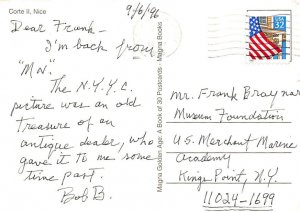 Corte II, Nice
9/6/96
Dear Frank -
I'm back from
"MN".
The N.Y.Y.C.
picture was an old
treasure of an
antique dealer, who
gave it to me some
time past.
Bob B.
Magna Golden Age: A Book of 30 Postcards · Magna Books
USA
32
Mr. Frank Braynar
Museum Foundation
U.S. Merchant Marine
Academy
Kings Point, N.Y.
11024-1699